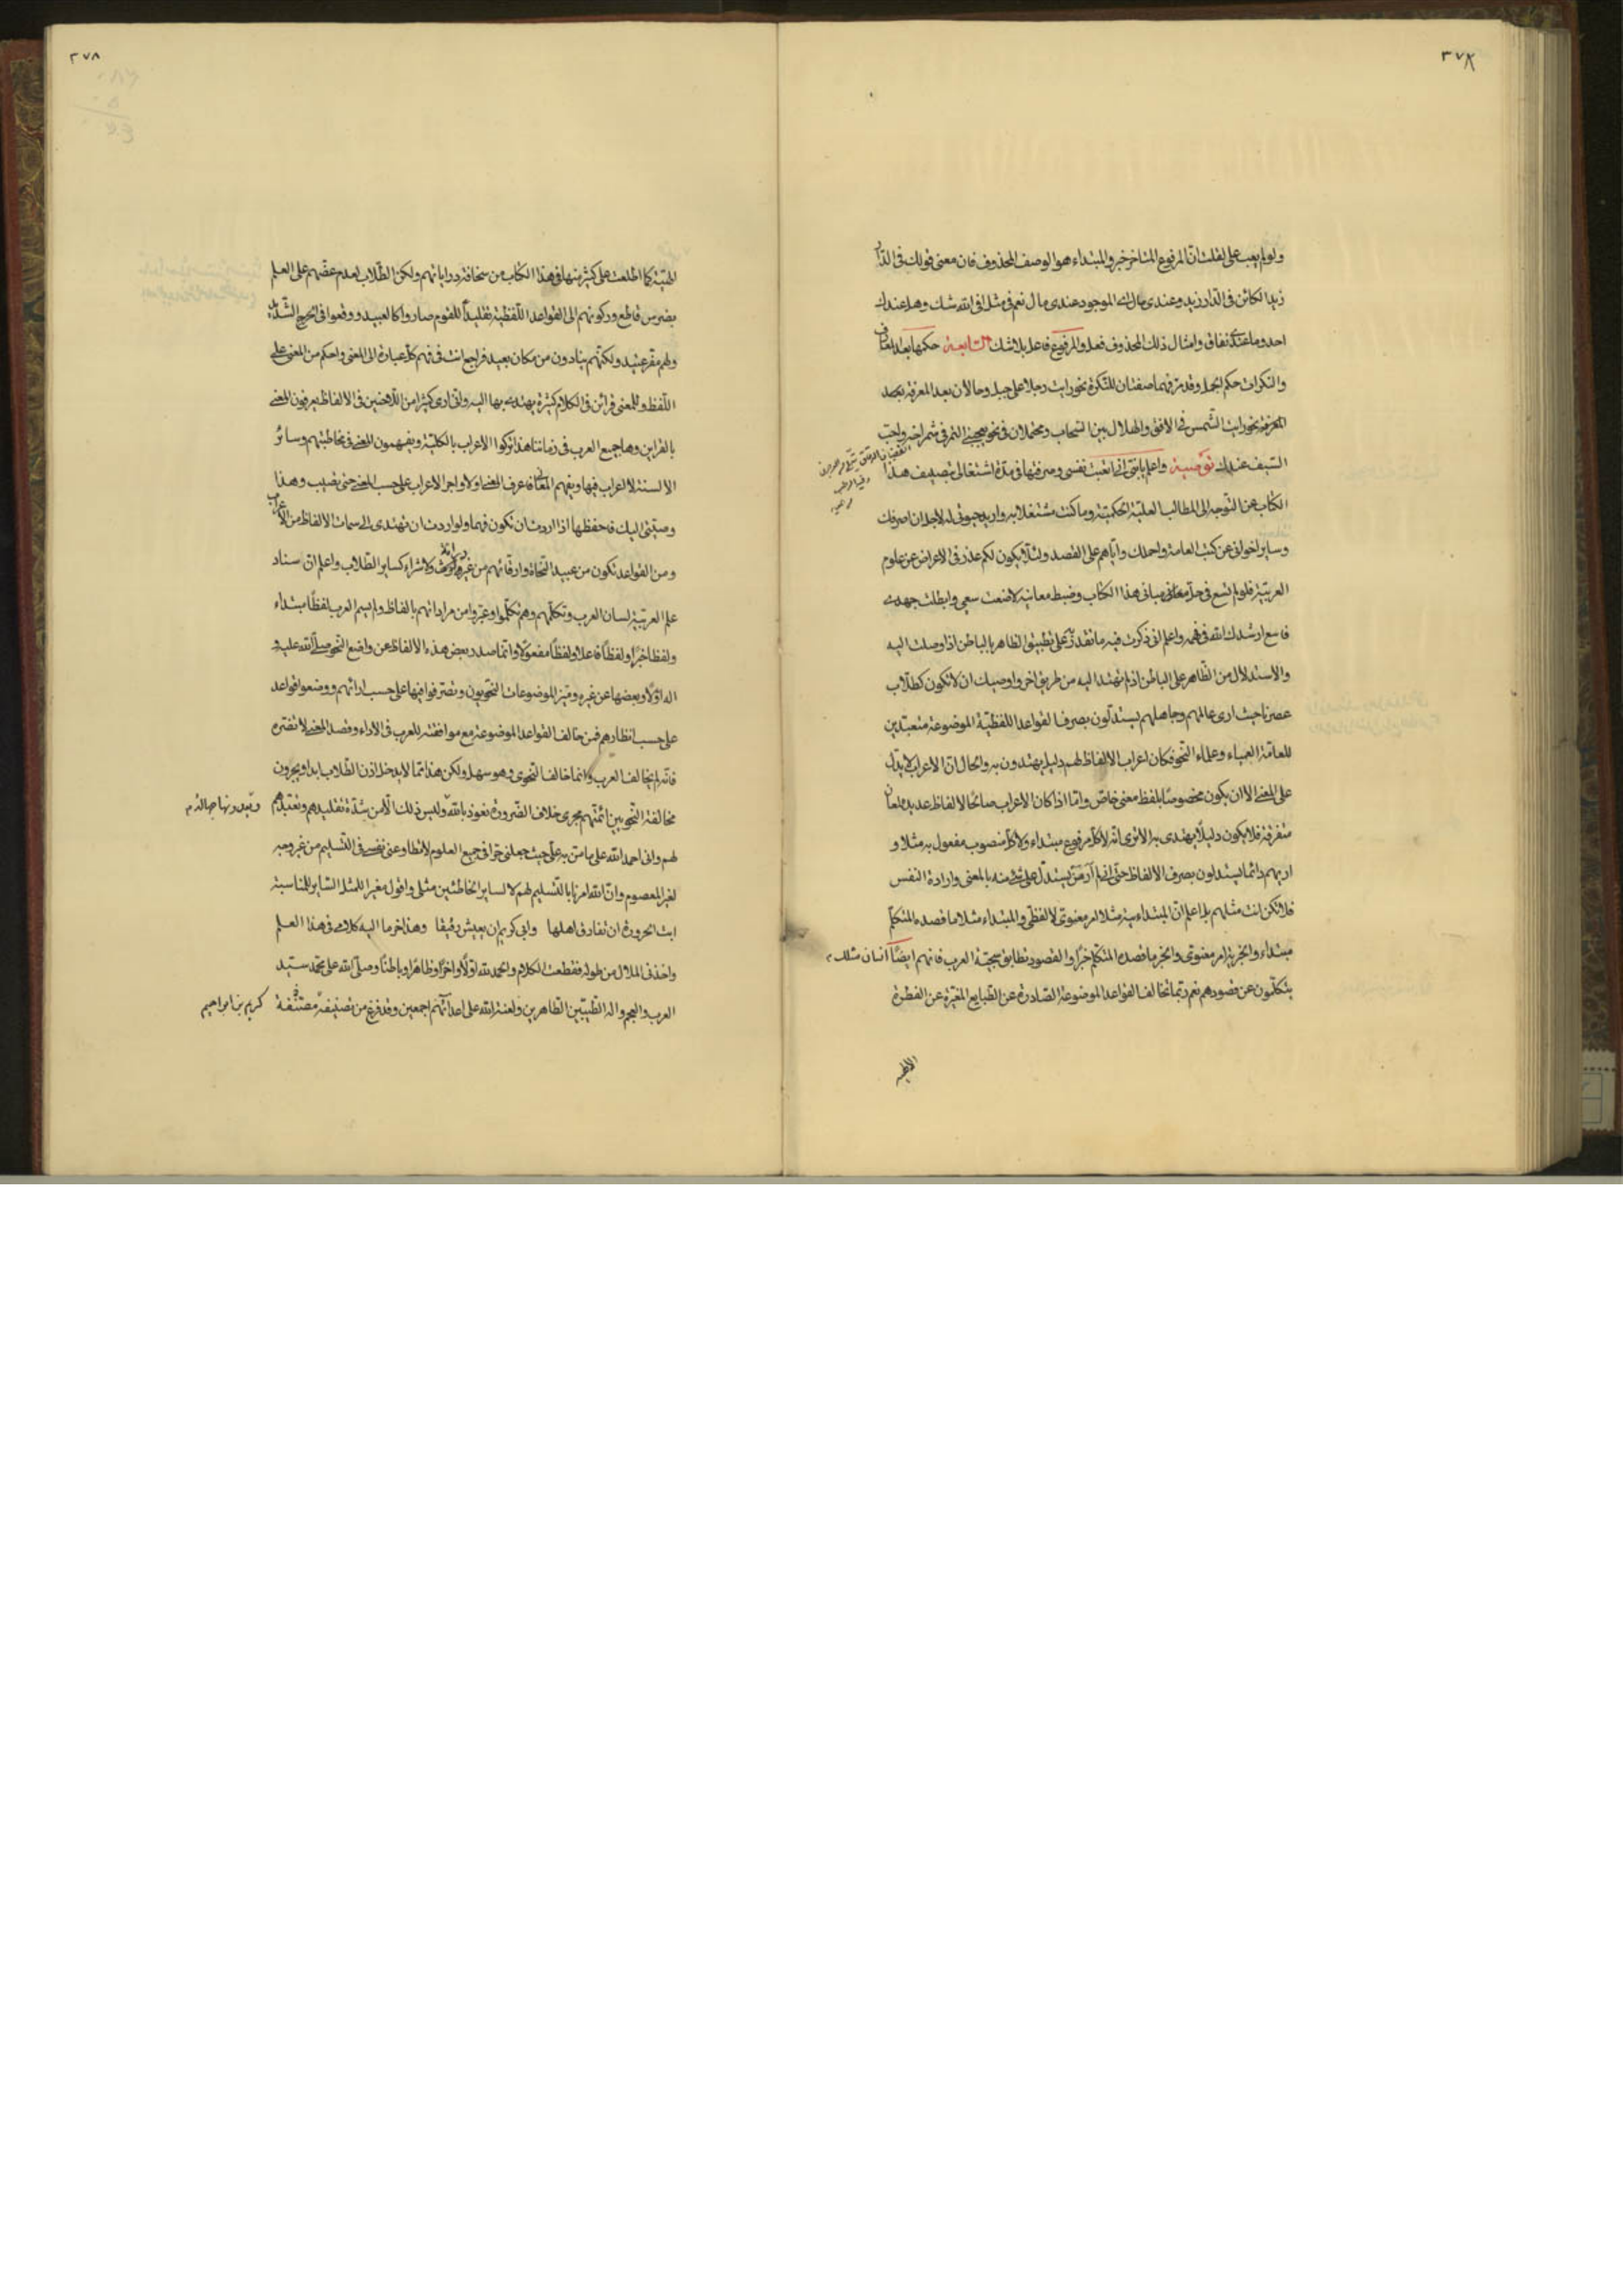 ٣٧٧
ولو لم يعب على لقلت ان المرفوع المتاخر خبر والمبتداء هو الوصف المحذوف فان معنى قولك فى الدار
زيد الكائن فى الدار زيد وعندى مال اى الموجود عندى مال نعم فى مثل افى الله شك وهل عندك
احد وما عندى نفاق وامثال ذلك المحذوف فعل والمرفوع فاعل بلا شك السابعة حكمها بعد المعارف
والنكرات حكم الجمل وقد مر فهما صفتان للنكرة نحو رايت رجلا على جبل وحالان بعد المعرفة بحد
المعرفة نحو رايت الشمس فى الافق والهلال بين السحاب ومحتملان فى نحو يعجبنى الثمر فى شجر اخضر واحب
السيف عندك توصية واعلم يابنى انى اتعبت نفسى وصرفتها فى مدة اشتغالى بتصنيف هذا
الكتاب عن التوجه الى المطالب العلية الحكمية وما كنت مشتغلا به واريد حيوتى له لاجل ان اصرفك
وساير اخوانى عن كتب العامة واحملك واياهم على القصد ولئلا يكون لكم عذر فى الاعراض عن علوم
العربية فلو لم تسع فى حل معانى مبانى هذا الكتاب وضبط معانيه لاضعت سعيى وابطلت جهدى
فاسع ارشدك الله فى فهمه واعلم انى ذكرت فيه ما تقدر به على تطبيق الظاهر بالباطن اذا وصلت اليه
والاستدلال من الظاهر على الباطن اذا لم تهتد اليه من طريق اخر واوصيك ان لا تكون كطلاب
عصرنا حيث ارى عالمهم وجاهلهم يستدلون بصرف القواعد اللفظية الموضوعة متعبدين
للعامة العمياء وعلماء النحو فكان اعراب الالفاظ لهم دليل يهتدون به والحال ان الاعراب لا يدل
على المعنى الا ان يكون مخصوصا بلفظ معنى خاص واما اذا كان الاعراب صالحا لالفاظ عديدة لمعان
متفرقة فلا يكون دليلا يهتدى به الا ترى انه لا كل مرفوع مبتداء ولا كل منصوب مفعول به مثلا و
اريهم دائما يستدلون بصرف الالفاظ حتى انى لم ار من يستدل على شئ منه بالمعنى وارادة النفس
فلا تكن انت مثلهم بل اعلم ان المبتداءية مثلا امر معنوى لا لفظى والمبتداء مثلا ما قصده المتكلم
مبتداء والخبرية امر معنوى والخبر ما قصده المتكلم خبرا والقصود تطابق سجية العرب فانهم ايضا اناسان مثلك
يتكلمون عن قصودهم نعم ربما تخالف القواعد الموضوعة الصادرة عن الطبايع المغيرة عن الفطرة
الالهية
٣٧٨
الهيئة كما اطلعت على كثير منها فى هذا الكتاب من سخافة روايا تهم ولكن الطلاب لعدم عضهم على العلم
بضرس قاطع وركونهم الى القواعد اللفظية تقليدا للقوم صاروا كالعبيد ووقعوا فى الحرج الشديد
ولهم مقر عتيد ولكنهم ينادون من مكان بعيد فراجع انت فى فهم كل عبارة الى المعنى واحكم من المعنى على
اللفظ وللمعنى قرائن فى الكلام كثيرة يهتدى بها اليه وانى ارى كثيرا من اللاحنين فى الالفاظ يعرفون المعنى
بالقراين وها جميع العرب فى زماننا هذا تركوا الاعراب بالكلية ويفهمون المعنى فى مخاطبتهم وسائر
الالسنة لا اعراب فيها ويفهم المعانى فاعرف المعنى اولا واجر الاعراب على حسب المعنى حتى تصيب وهذا
وصيتى اليك فاحفظها اذا اردت ان تكون فهما ولو اردت ان تهتدى الى سمات الالفاظ من الاعراب
ومن القواعد تكون من عبيد النحاة وارقائهم من غير ولا شراء كساير الطلاب واعلم ان سناد
علم العربية لسان العرب وتكلمهم وهم تكلموا وعبروا من مراداتهم بالفاظ ولم يسم العرب لفظا مبتداء
ولفظا خبرا ولفظا فاعلا ولفظا مفعولا وانما صدر بعض هذه الالفاظ عن واضع النحو صلى الله عليه و
اله اولا وبعضها عن غيره وميز الموضوعات النحويون وتصرفوا فيها على حسب ارائهم ووضعوا قواعد
على حسب انظارهم فمن خالف القواعد الموضوعة مع موافقته للعرب فى الاداء وقصد المعنى لا تضره
فانه لم يخالف العرب وانما خالف النحوى وهو سهل ولكن هذا مما لا يدخل اذن الطلاب ابدا ويرون
مخالفة النحويين ائمتهم مجرى خلاف الضرورة نعوذ بالله وليس ذلك الا من شدة تقليدهم وتعبدهم
لهم وانى احمد الله على ما من به على حيث جعلنى حرا فى جميع العلوم لا تطاوعنى نفسى فى التسليم من غير وجه
لغير المعصوم وان الله امرنا بالتسليم لهم لا لساير الخاطئين مثلى واقول مغيرا للمثل الساير للمناسبة
ابت الحرورة ان تفارق اهلها وابى كريم ان يعيش رقيقا وهذا اخر ما اليه كلامى فى هذا العلم
واخذنى الملال من طوله فقطعت الكلام والحمد لله اولا واخرا وظاهرا وباطنا وصلى الله على محمد سيد
العرب والعجم واله الطيبين الطاهرين ولعنة الله على اعدائهم اجمعين وقد فرغ من تصنيفه مصنفه كريم بن ابراهيم